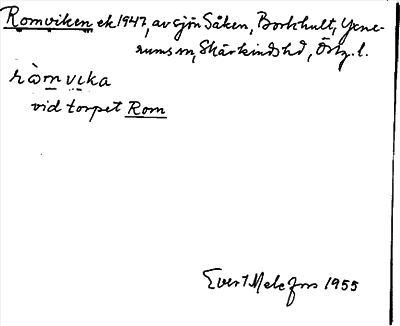 Romviken ek 1947, av sjön Såken, Borkhult, Yxne-
rums sn, Skärkinds hd, Östg. l.
ròmvika
vid torpet Rom
Evert Melefors 1955